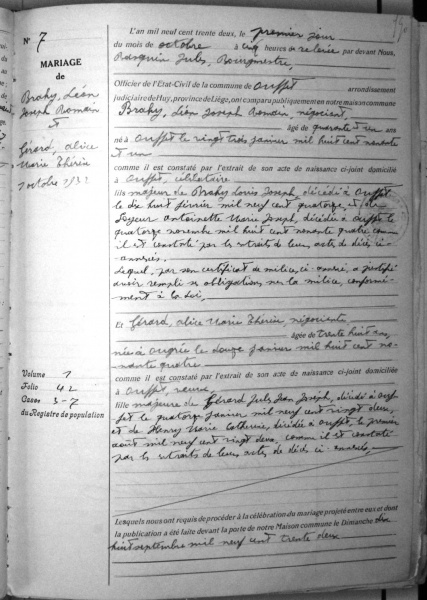 N° 7
MARIAGE
de
Brahy, Léon
Joseph Romain
et
Gérard, Alice
Marie Thérèse
1 octobre 1932
L'an mil neuf cent trente deux, le premier jour
du mois de octobre à cinq heures de relevée par devant Nous,
Jules, Bourgmestre,
Officier de l'Etat-Civil de la commune de Ouffet arrondissement
judiciaire de Huy, province de Liége, ont comparu publiquement en notre maison commune
Brahy, Léon Joseph Romain, négociant,
âgé de quarante et un ans
né à Ouffet le vingt trois janvier mil huit cent nonante
et un
comme il est constaté par l'extrait de son acte de naissance ci-joint domicilié
à Ouffet, célibataire
fils majeur de Brahy Louis Joseph, décédé à Ouffet
le dix huit février mil neuf cent quatorze, et de
Antoinette Marie Joseph, décédée à Ouffet le
quatorze novembre mil huit cent nonante quatre com
il est constaté par les extraits de leurs actes de décès ci-
annexés.
Lequel, par son certificat de milice, ci-annexé, a justifié
avoir rempli ses obligations sur la milice, conformé-
ment à la loi,
Et Gérard, Alice Marie Thérèse, négociante,
âgée de trente huit ans,
née à Ougrée le douze janvier mil huit cent no-
nante quatre
comme il est constaté par l'extrait de son acte de naissance ci-joint domiciliée
à Ouffet, veuve
fille majeure de Gérard Jules Jean Joseph, décédé à Ouf-
fet le quatorze janvier mil neuf cent vingt deux,
et de Henry Marie Catherine, décédée à Ouffet, le premier
août mil neuf cent vingt deux, comme il est constaté
par les extraits de leurs actes de décès ci-annexés.
Volume 1
Folio 42
Cases 3-7
du Registre de population
Lesquels nous ont requis de procéder à la célébration du mariage projeté entre eux et dont
la publication a été faite devant la porte de notre Maison commune le Dimanche dix
huit septembre mil neuf cent trente deux